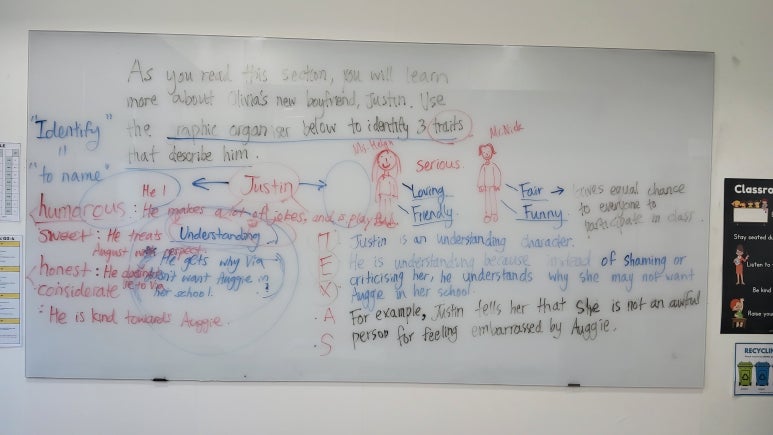 As you read this section, you will learn
more about Olivia's new boyfriend, Justin. Use
the raphic organiser below to identify 3 traits
that describe him.
"Identify"
=
"to name"
Mr. Nick
serious
He !
Justin
Loving
Friendly
Fair → Gives equal chance
to everyone to
participate in class.
Funny
humorous : He makes a lot of jokes, and is
sweet : He treats
August
honest : He
considerate
: He is kind towards Auggie.
Understanding
He gets why Via
want Auggie in
her school.
T Justin is an understanding character.
E He is understanding because instead of shaming or
X criticising her, he understands why she may not want
Auggie in her school.
A For example, Justin tells her that she is not an awful
S person for feeling embarrassed by Auggie.
Classro
Stay seated du
Listen to
Be kind
Raise your
RECYCLIN